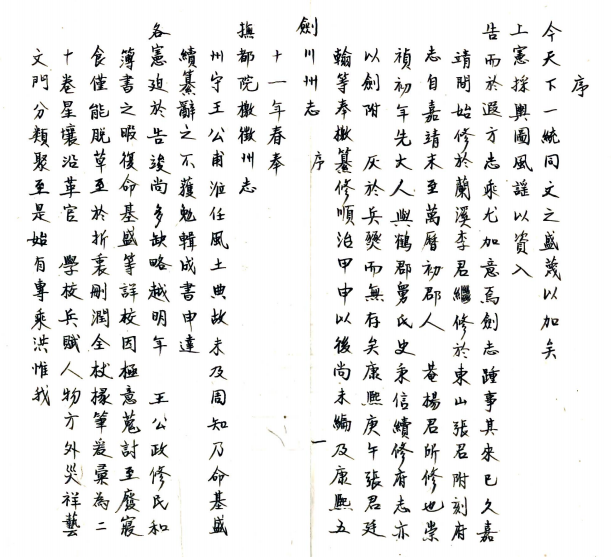 序
今天下一統同文之盛蔑以加矣
上憲採輿圖風謠以資入
告而於遐方志乘尤加意焉劍志踵事其來已久嘉
靖間始修於蘭溪李君繼修於東山張君附刻府
志自嘉靖末至萬曆初郡人 菴楊君所修也崇
禎初年先大人與鶴郡舅氏史秉信續修府志亦
以劍附 灰於兵燹而無存矣康熙庚午張君廷
翰等奉檄纂修順治甲申以後尚未編及康熙五
劍川州志 序 一
十一年春奉
撫都院檄徵州志
州守王公甫涖任風土典故未及周知乃命基盛
續纂辭之不獲勉輯成書申達
各憲迫於告竣尚多缺略越明年 王公政修民和
簿書之暇復命基盛等詳校因極意蒐討至廢寢
食僅能脫草至於折衷刪潤全杖掾筆爰彙為二
十卷星壤沿革官 學校兵賦人物方外災祥藝
文門分類聚至是始有專乘洪惟我